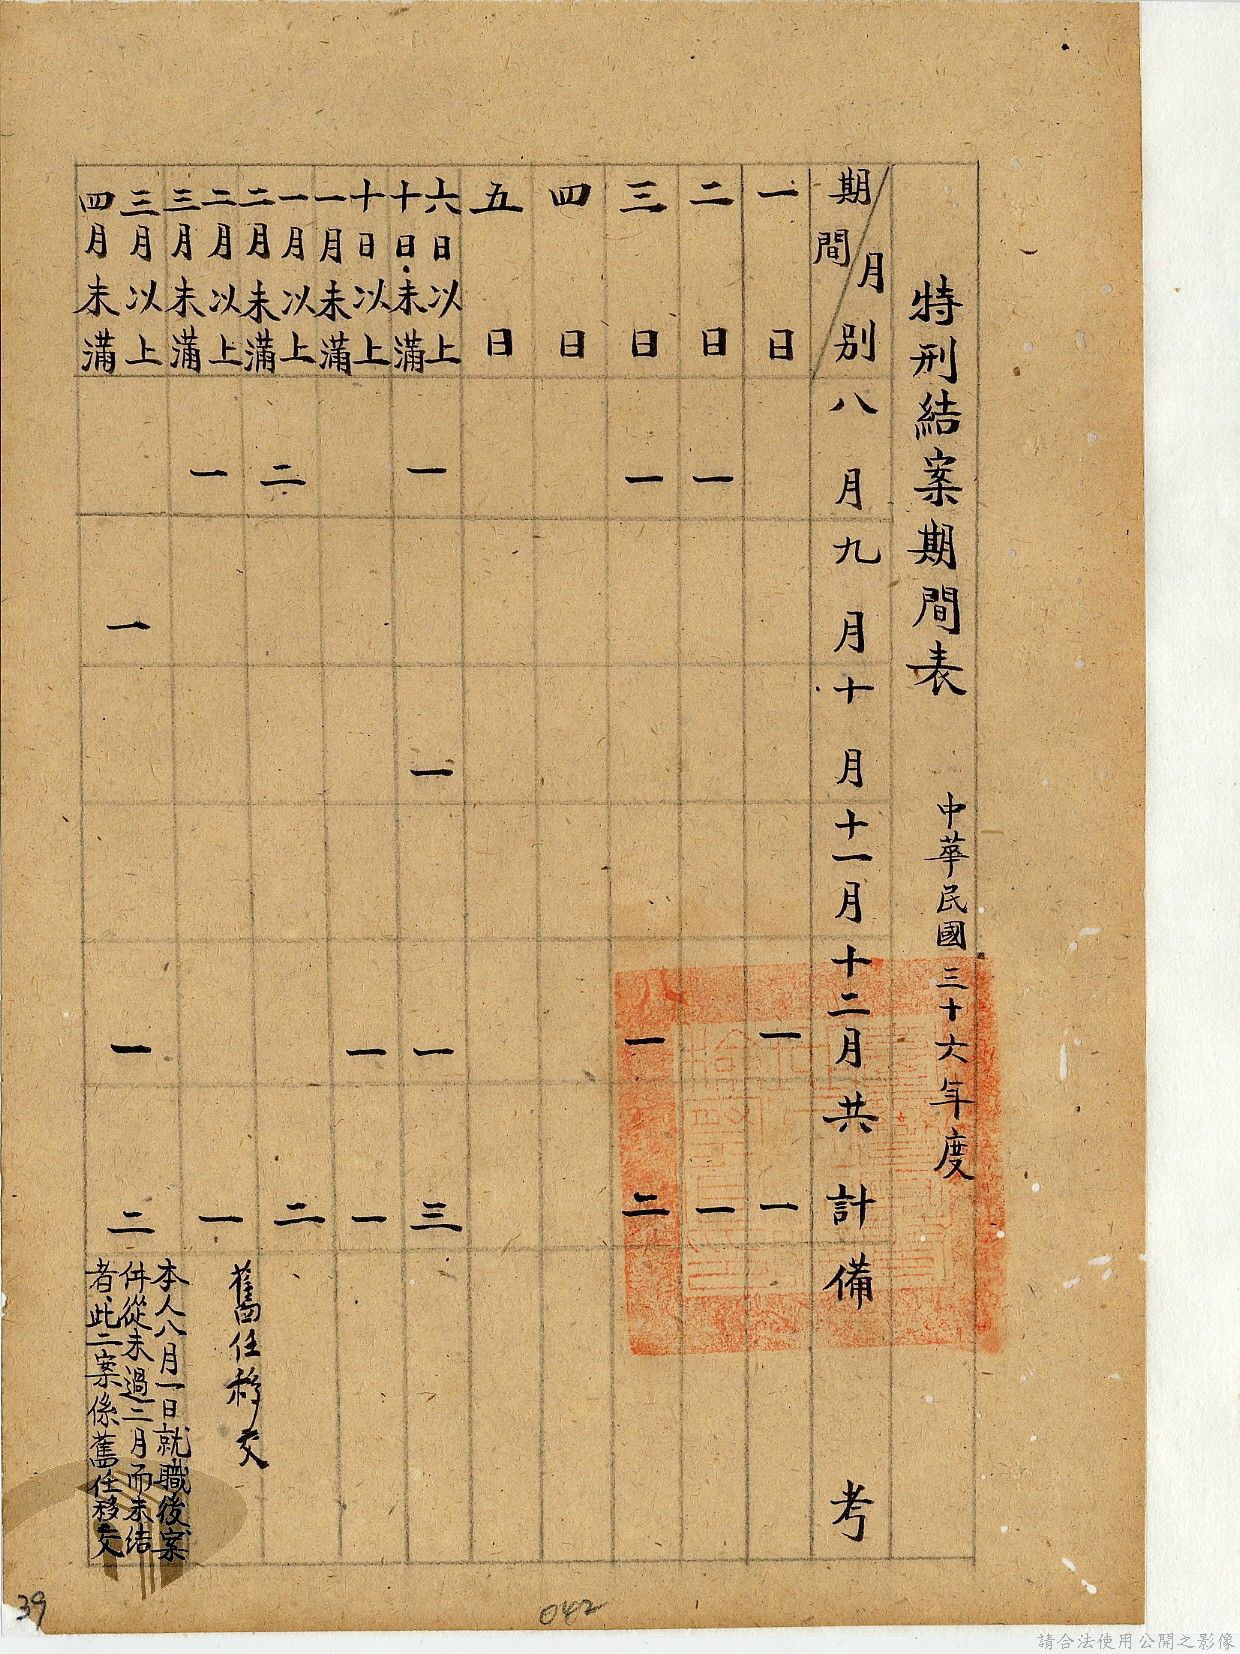 特刑結案期間表 中華民國三十六年度
期間 月別 八月 九月 十月 十一月 十二月 共計 備考
一日 一 一
二日 一 一
三日 一 一 二
四日
五日
六日以上十日未滿 一 一 一 三
十日以上一月未滿 一 一
一月以上二月未滿 二 二
二月以上三月未滿 一 一 舊任移交
三月以上四月未滿 一 一 二 本人八月一日就職後案件從未過二月而未結者此二案係舊任移交
39
042
請合法使用公開之影像